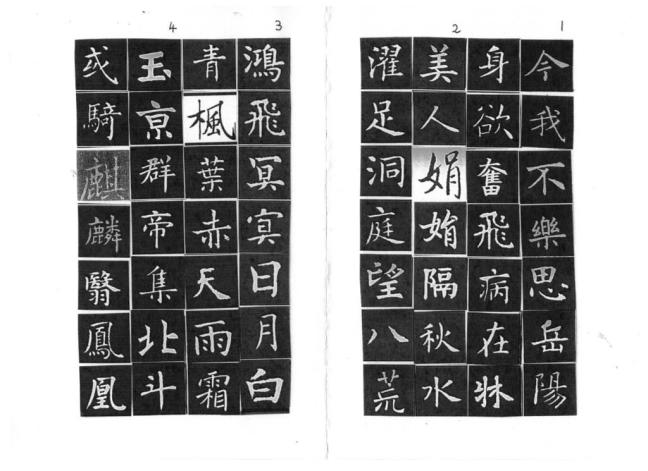 1
今我不樂思岳陽
身欲奮飛病在牀
2
美人娟娟隔秋水
濯足洞庭望八荒
3
鴻飛冥冥日月白
青楓葉赤天雨霜
4
玉京群帝集北斗
或騎麒麟翳鳳凰